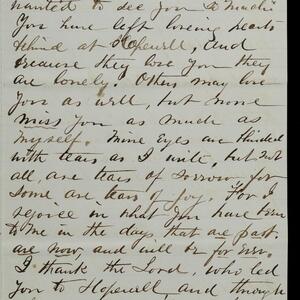 wanted to see you so much.
You have left loving hearts
behind at Hopewell, and
because they love you they
are lonely. Others may love
you as well, but none
miss you as much as
myself. Mine Eyes are blinded
with tears as I write, but not
all, are tears of sorrow, for
some are tears of joy. For I
rejoice in what you have been
to me in the days that are past,
are now, and will be for Ever.
I thank the Lord, who led
you to Hopewell, and through